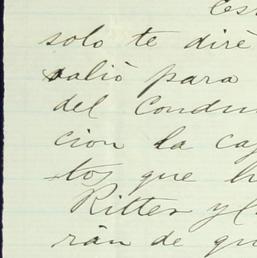 solo te dirè
saliò para
del Condu
cion la caj
tos que h
Ritter y C
ràn de qu